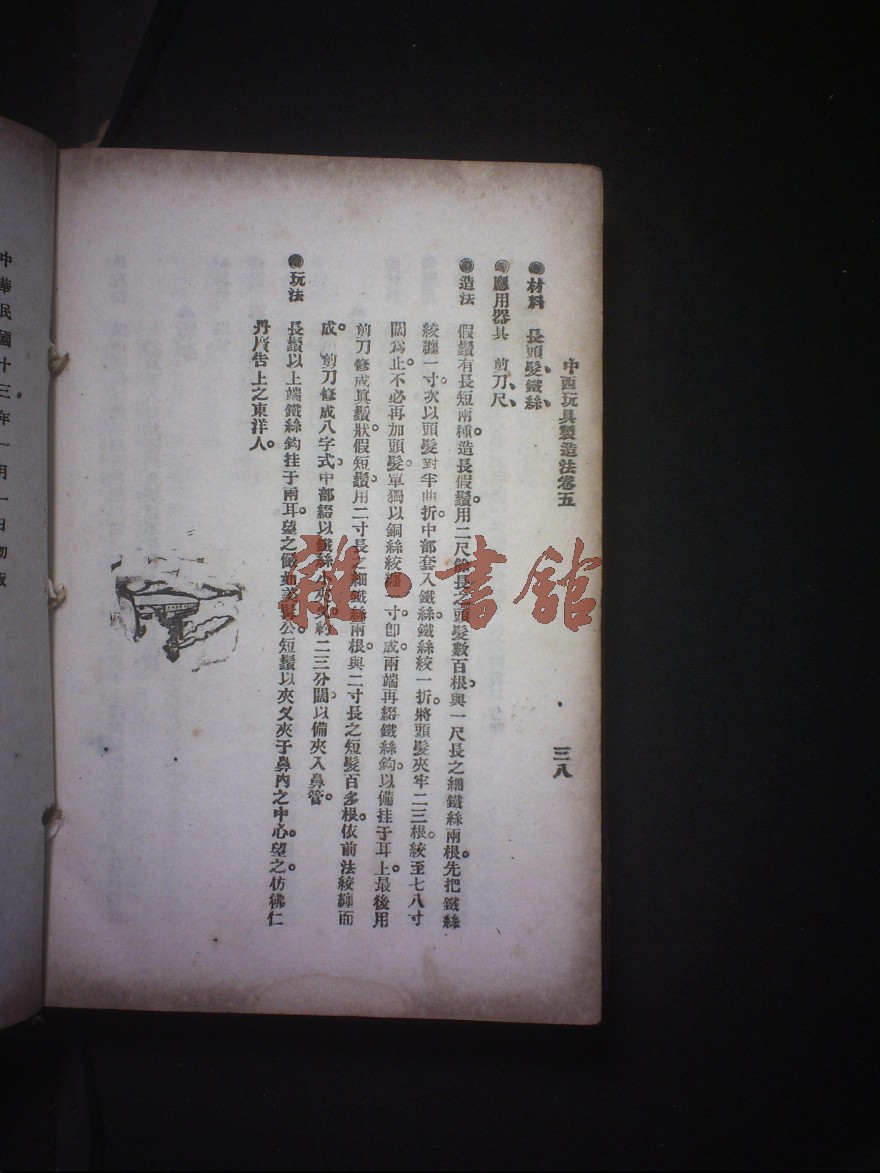 中西玩具製造法卷五
三八
●材料　長頭髮、鐵絲、
●應用器具　剪刀、尺、
●造法　假鬚有長短兩種。造長假鬚。用二尺餘長之頭髮數百根。與一尺長之細鐵絲兩根。先把鐵絲
絞纏一寸。次以頭髮對半曲折。中部套入鐵絲。鐵絲絞一折。將頭髮夾牢二三根。絞至七八寸
闊為止。不必再加頭髮。單獨以銅絲絞纏一寸即成。兩端再綴鐵絲鈎。以備挂于耳上。最後用
剪刀修成眞鬚狀。假短鬚。用二寸長之細鐵絲兩根。與二寸長之短髮百多根。依前法絞纏而
成。剪刀修成八字式。中部綴以鐵絲小夾。夕約二三分闊。以備夾入鼻管。
●玩法　長鬚以上端鐵絲鈎挂于兩耳。望之儼如美髯公。短鬚以夾夕夾于鼻內之中心。望之仿彿仁
丹廣告上之東洋人。
中華民國十三年一月一日初版
雜·書舘